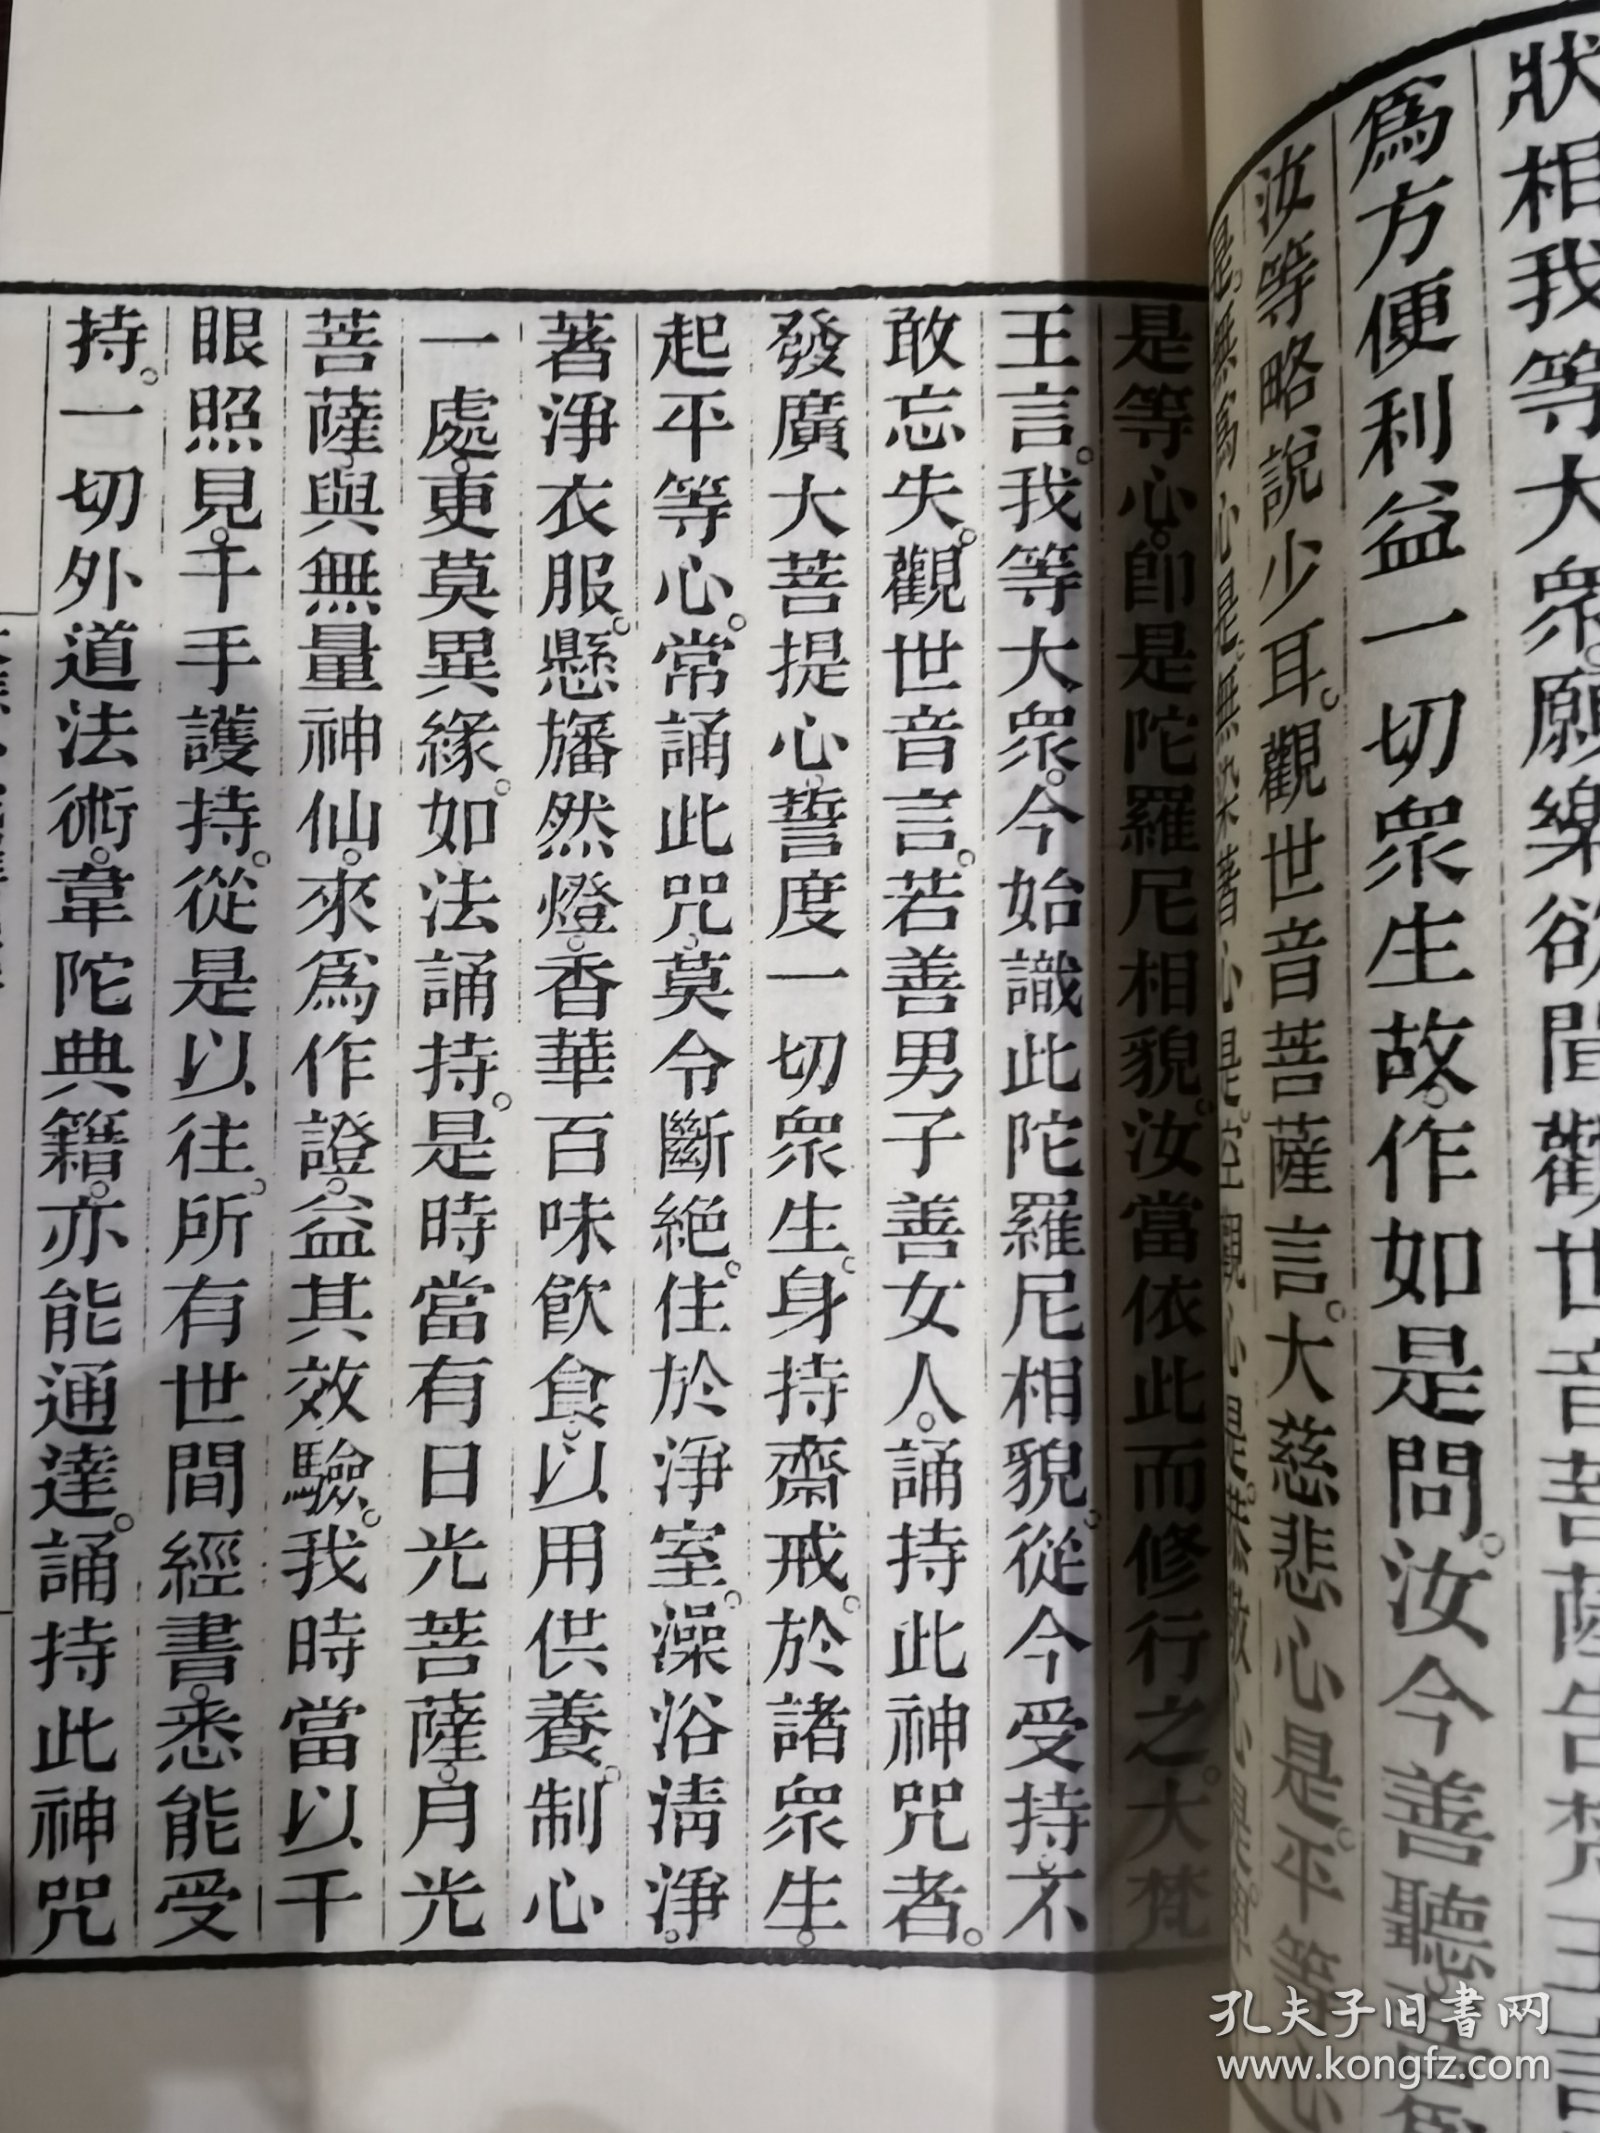 狀相我等大衆。願樂欲聞觀世音菩薩告梵王言
爲方便利益一切衆生故。作如是問。汝今善聽
汝等略說少耳。觀世音菩薩言。大慈悲心是。平等心
是。無爲心是。無染著心是。空觀心是。恭敬心是。
是等心。卽是陀羅尼相貌。汝當依此而修行之。大梵
王言。我等大衆。今始識此陀羅尼相貌。從今受持。不
敢忘失。觀世音言。若善男子善女人。誦持此神咒者。
發廣大菩提心。誓度一切衆生。身持齋戒。於諸衆生。
起平等心。常誦此咒。莫令斷絕。住於淨室。澡浴淸淨。
著淨衣服。懸旛然燈。香華百味飮食。以用供養。制心
一處。更莫異緣。如法誦持。是時當有日光菩薩。月光
菩薩。與無量神仙。來爲作證。益其效驗。我時當以千
眼照見。千手護持。從是以往。所有世間經書。悉能受
持。一切外道法術。韋陀典籍。亦能通達。誦持此神咒
孔夫子旧書网
www.kongfz.com